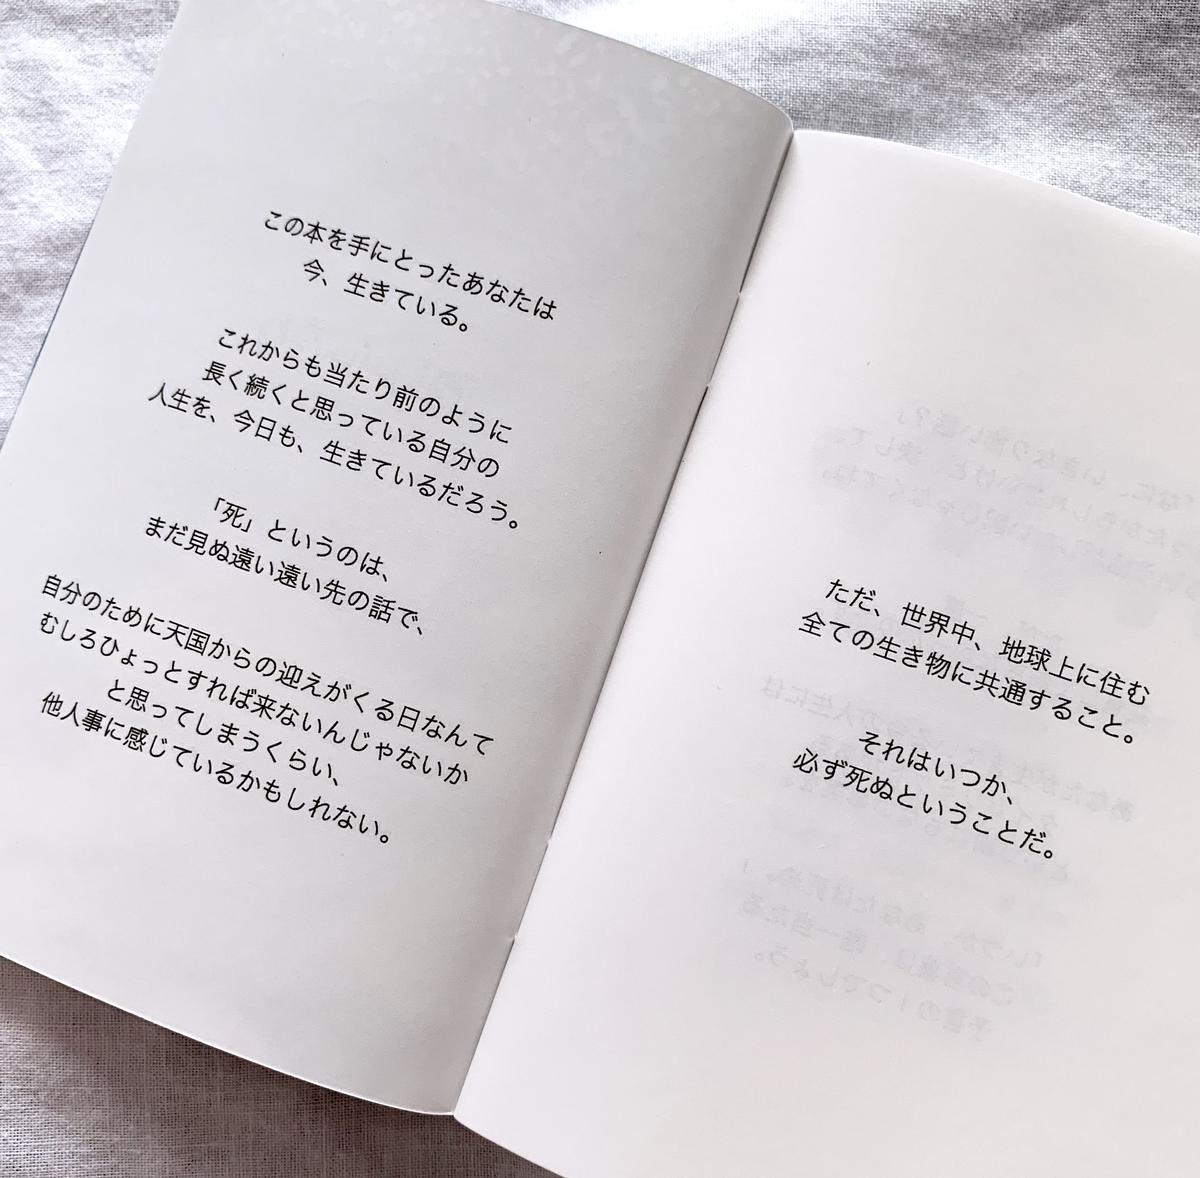 この本を手にとったあなたは
今、生きている。
これからも当たり前のように
長く続くと思っている自分の
人生を、今日も、生きているだろう。
「死」というのは、
まだ見ぬ遠い遠い先の話で、
自分のために天国からの迎えがくる日なんて
むしろひょっとすれば来ないんじゃないか
と思ってしまうくらい、
他人事に感じているかもしれない。
ただ、世界中、地球上に住む
全ての生き物に共通すること。
それはいつか、
必ず死ぬということだ。